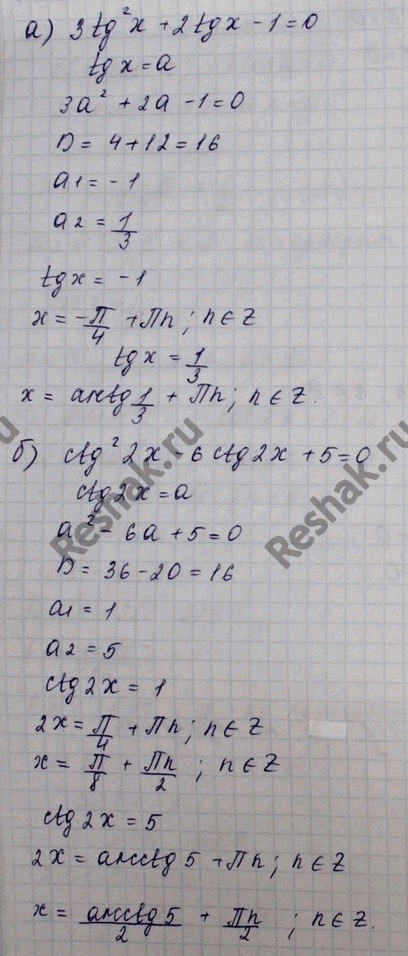 а) 3tg²x + 2tgx - 1 = 0
tgx = a
3a² + 2a - 1 = 0
D = 4 + 12 = 16
a1 = -1
a2 = 1/3
tgx = -1
x = -π/4 + πn; n ∈ Z
tgx = 1/3
x = arctg 1/3 + πn; n ∈ Z.
б) ctg²2x - 6ctg2x + 5 = 0
ctg2x = a
a² - 6a + 5 = 0
D = 36 - 20 = 16
a1 = 1
a2 = 5
ctg2x = 1
2x = π/4 + πn; n ∈ Z
x = π/8 + πn/2; n ∈ Z
ctg2x = 5
2x = arcctg5 + πn; n ∈ Z
x = arcctg5/2 + πn/2; n ∈ Z.
Reshak.ru
Reshak.ru